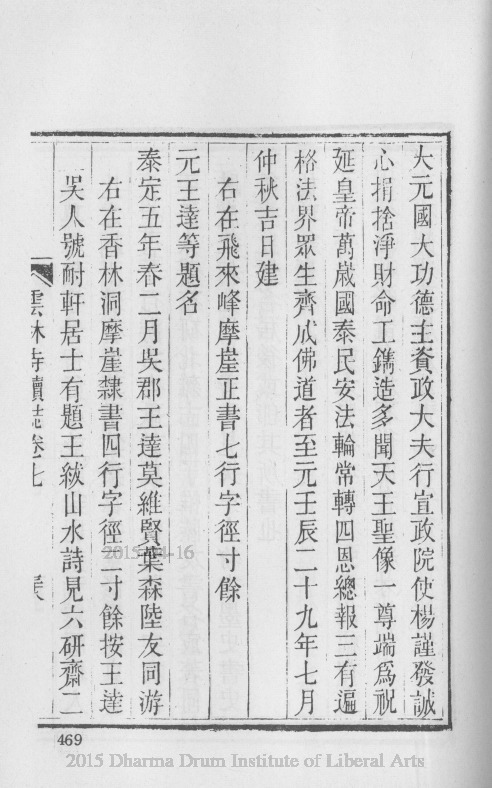 大元國大功德主資政大夫行宣政院使楊謹發誠
心捐捨淨財命工鐫造多聞天王聖像一尊端爲祝
延皇帝萬歲國泰民安法輪常轉四恩總報三有遍
格法界眾生齊成佛道者至元壬辰二十九年七月
仲秋吉日建
右在飛來峰摩崖正書七行字徑寸餘
元王達等題名
泰定五年春二月吳郡王達莫維賢葉森陸友同游
右在香林洞摩崖隸書四行字徑二寸餘按王達
吳人號耐軒居士有題王紱山水詩見六研齋二
雲林寺續誌卷七
2015-04-16
469
2015 Dharma Drum Institute of Liberal Arts